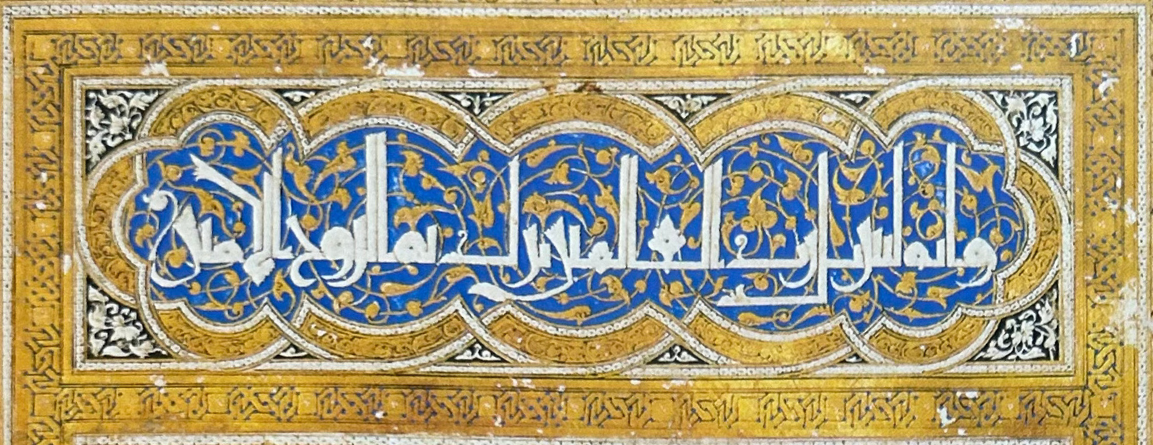 وانه لتنزيل رب العلمين نزل به الروح الامين